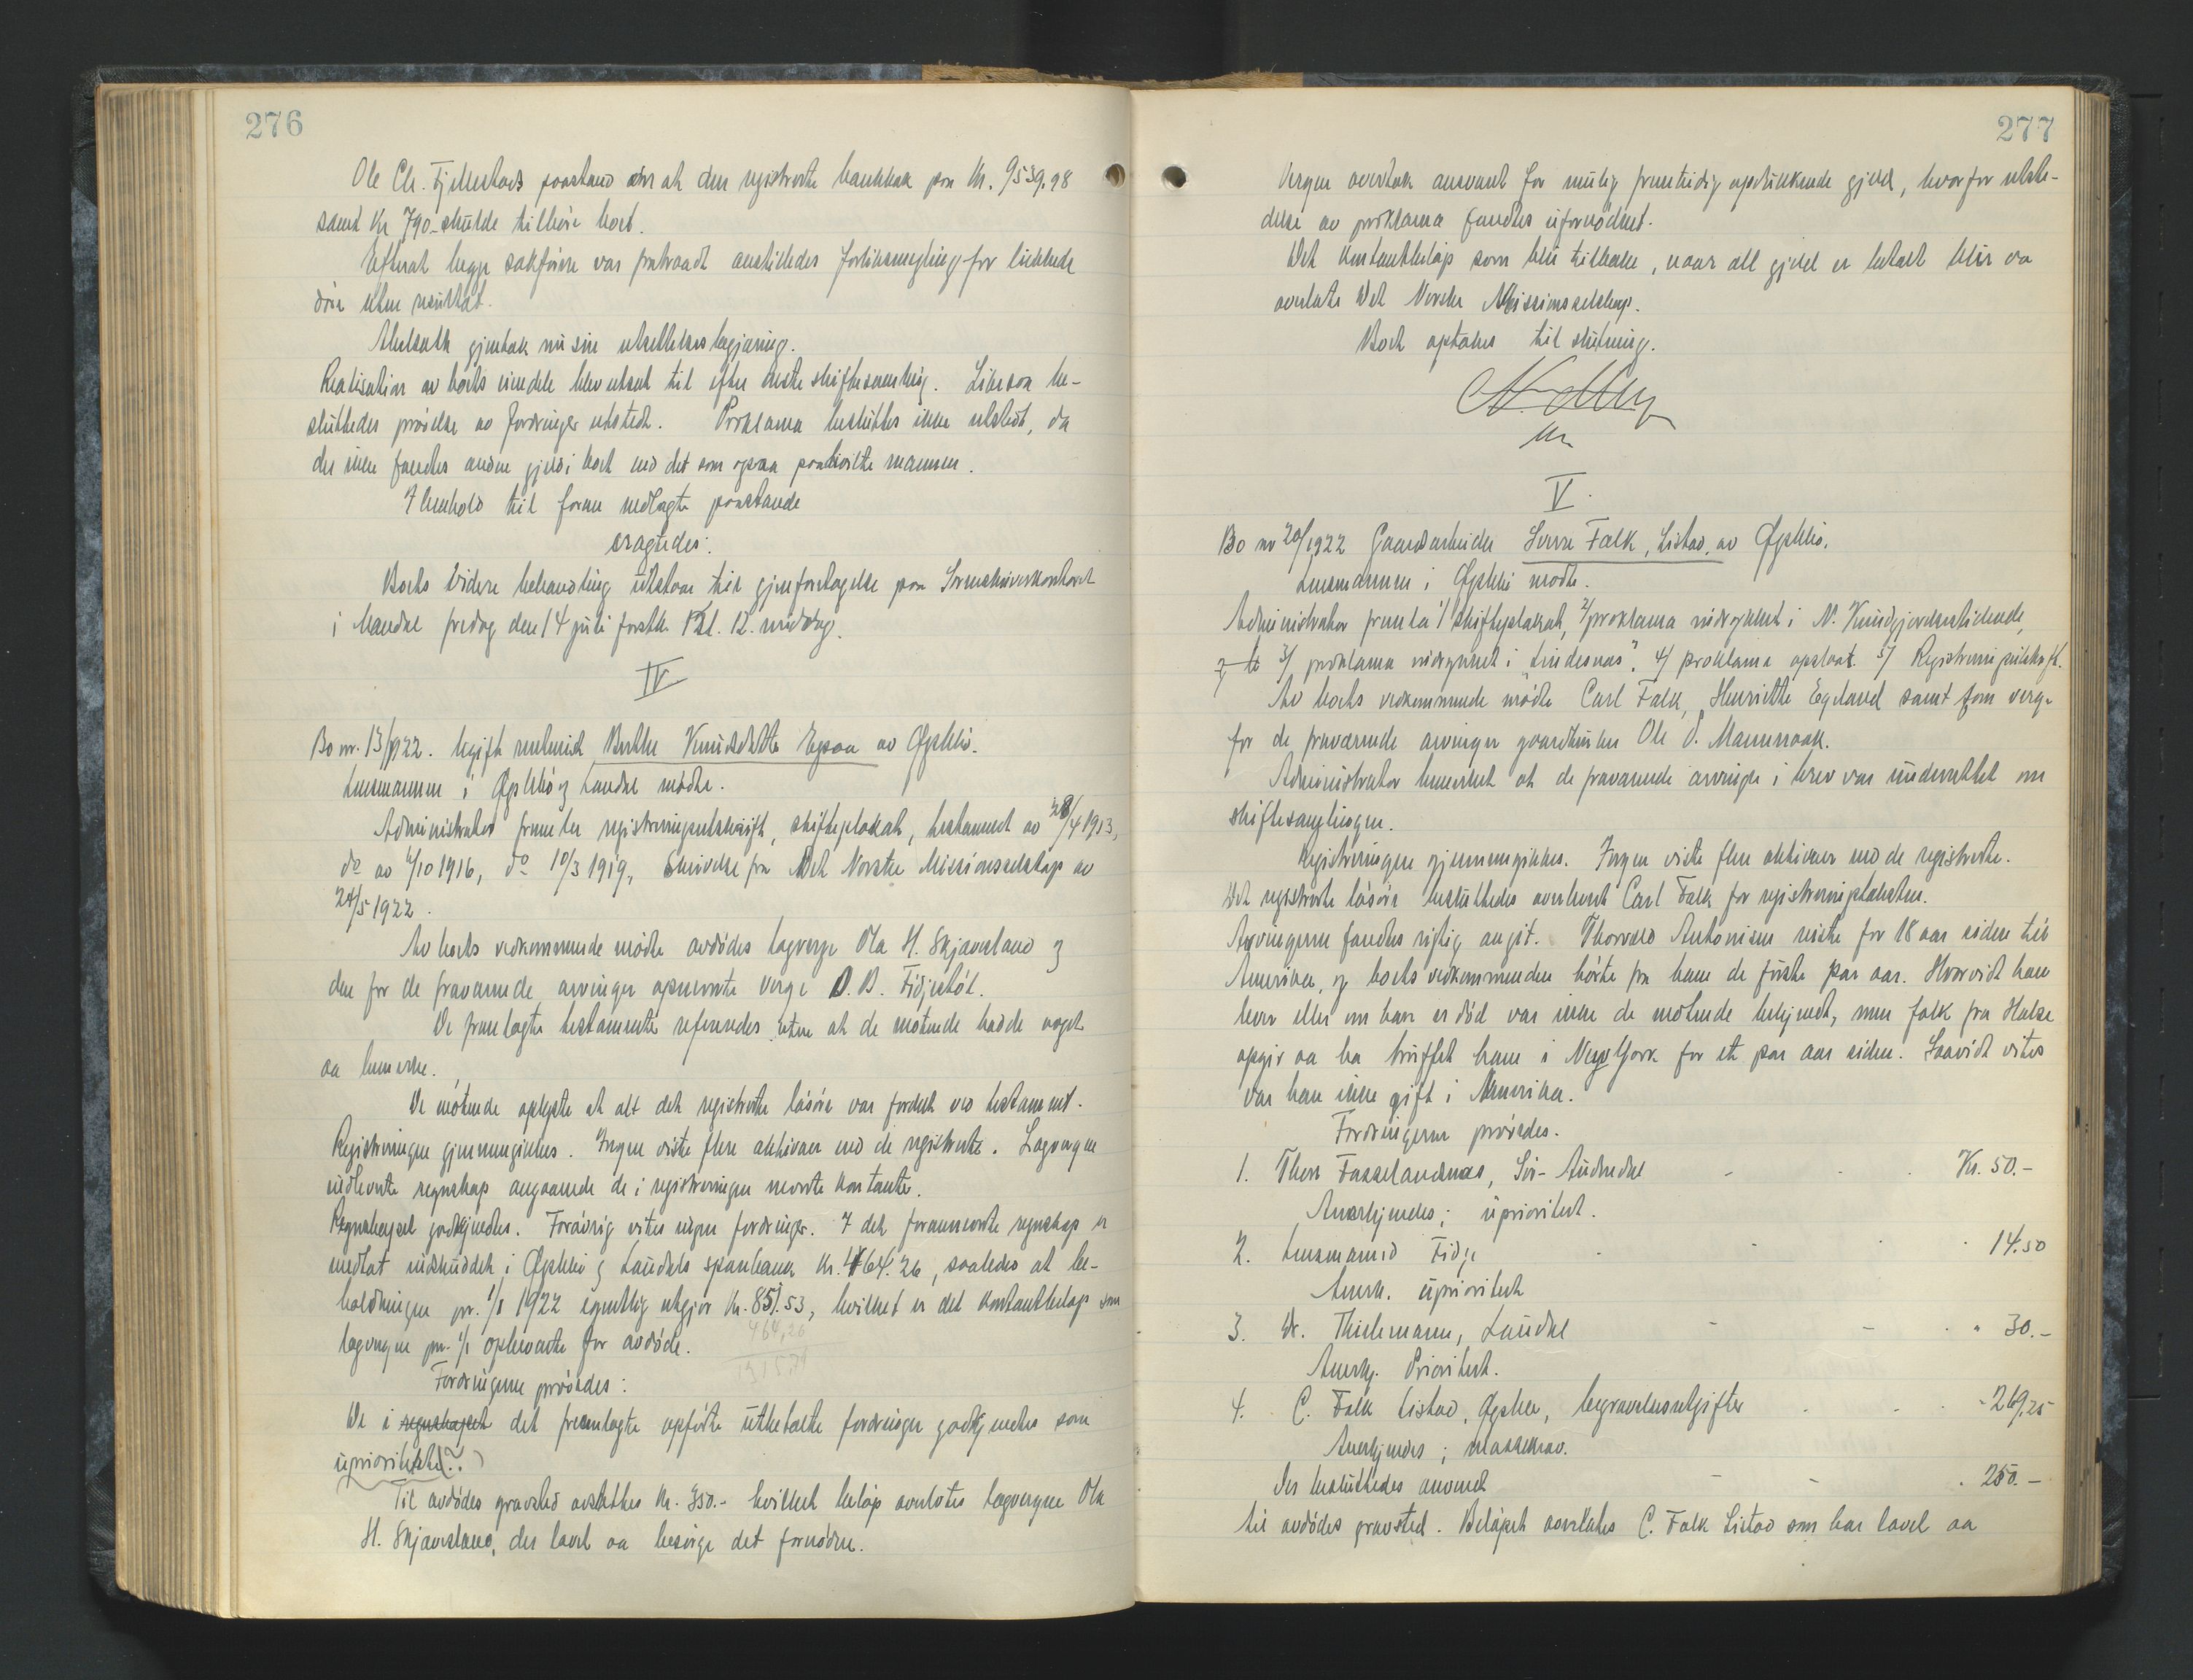 276
Ole Chr. Fjellestads paastand om at den registrerte bankbok paa Kr. 9539.98
samt Kr 790- skulde tilhøre boet.
Efterat begge sakførere var fratraadt anstilledes forliksmegling for lukkede
døre uten resultat.
gjentok nu sin utsættelsesbegjæring.
Realisation av boets eiendele blev utsat til efter næste skiftesamling. Likesaa be-
sluttedes prøvelse av fordringer utstedt. Proklama besluttes ikke utstedt, da
der ikke fandtes anden gjeld i boet end det som ogsaa paahvilte manden.
I henhold til foran nedlagte paastande
eragtedes:
Boets videre behandling utstaar til gjenforetagelse paa Sorenskriverkontoret
i Mandal fredag den 14 juli førstk. kl. 12. middag.
IV
Bo nr. 13/1922. Ugift myndig Berthe Knudsdatter Egsaa av Øyslebø.
Lensmannen i Øyslebø og Laudal mødte.
Administrator fremla registreringsutskrift, skifteplakat, testament av 28/4 1913,
do av 6/10 1916, do 10/3 1919, Skrivelse fra Det Norske Missionsselskap av
24/5 1922.
Av boets vedkommende mødte avdødes lagverge Ola H. Skjævesland og
den for de fraværende arvinger opnævnte verge O. B. Fidjestøl.
De fremlagte testamenter refereredes uten at de møtende hadde noget
aa bemerke.
De møtende oplyste at alt det registrerte løsøre var fordelt ved testament.
Registreringen gjennemgikkes. Ingen viste flere aktiver end de registrerte. Lagvergen
indleverte regnskap angaaende de i registreringen nevnte kontanter.
Regnskapet godkjendtes. Forøvrig vites ingen fordringer. I det forannevnte regnskap er
medtat indskuddet i Øyslebø og Laudals sparebank Kr. 464.26, saaledes at be-
holdningen pr. 1/1 1922 egentlig utgjør Kr. 851.53, hvilket er det kontantbeløp som
lagvergen pr. 1/1 opbevarte for avdøde.
464,26
1315,79
Fordringerne prøvedes:
De i regnskapet det fremlagte opførte utbetalte fordringer godkjendtes som
uprioriterte.
Til avdødes gravsted avsættes Kr. 350.- hvilket beløp overlates lagvergen Ola
H. Skjævesland, der lovet aa besørge det fornødne.
277
Vergen overtok ansvaret for mulig fremtidig opdukkende gjeld, hvorfor utste-
delse av proklama fandtes ufornødent.
Det kontantbeløp som blir tilbake, naar all gjeld er betalt blir aa
overlate Det Norske Missionsselskap.
Boet optokes til slutning.
V.
Bo nr 20/1922 Gaardarbeider Sverre Falk, Listad, av Øyslebø.
Lensmannen i Øyslebø mødte.
Administrator fremla 1/ skifteplakat, 2/ proklama indrykket i N. Kundgjørelsestidende,
3/ proklama indrykket i "Lindesnes", 4/ proklama opslaat. 5/ Registreringsutskrift.
Av boets vedkommende mødte Carl Falk, Henriette Egeland samt som verge
for de fraværende arvinger gaardbruker Ole O. Mannraak.
Administrator bemerket at de fraværende arvinger i brev var underrettet om
skiftesamlingen.
Registreringen gjennemgikkes. Ingen viste flere aktiver end de registrerte.
Det registrerte løsøre besluttedes overlevert Carl Falk for registreringstaksten.
Arvingerne fandtes rigtig angit. Thorvald Antonisen reiste for 18 aar siden til
Amerika, og boets vedkommende hørte fra ham de første par aar. Hvorvidt han
lever eller om han er død var ikke de møtende bekjendt, men folk fra Halse
opgir aa ha truffet ham i New York for et par aar siden. Saavidt vites
var han ikke gift i Amerika.
Fordringerne prøvedes.
1. Thore Fasselandsnes, Sør-Audnedal - - - Kr. 50.-
Anerkjendes; uprioritert.
2. Lensmand Fidje - - - 14.50
Anerk. uprioritert
3. Dr. Thielemann, Laudal - - - " 30.-
Anerkj. Prioritert.
4. C. Falk Listad, Øyslebø, begravelsesutgifter - - - 269,25
Anerkjendes; massekrav.
Der besluttedes anvendt - - - 250.-
til avdødes gravsted. Beløpet overlates C. Falk Listad som har lovet aa